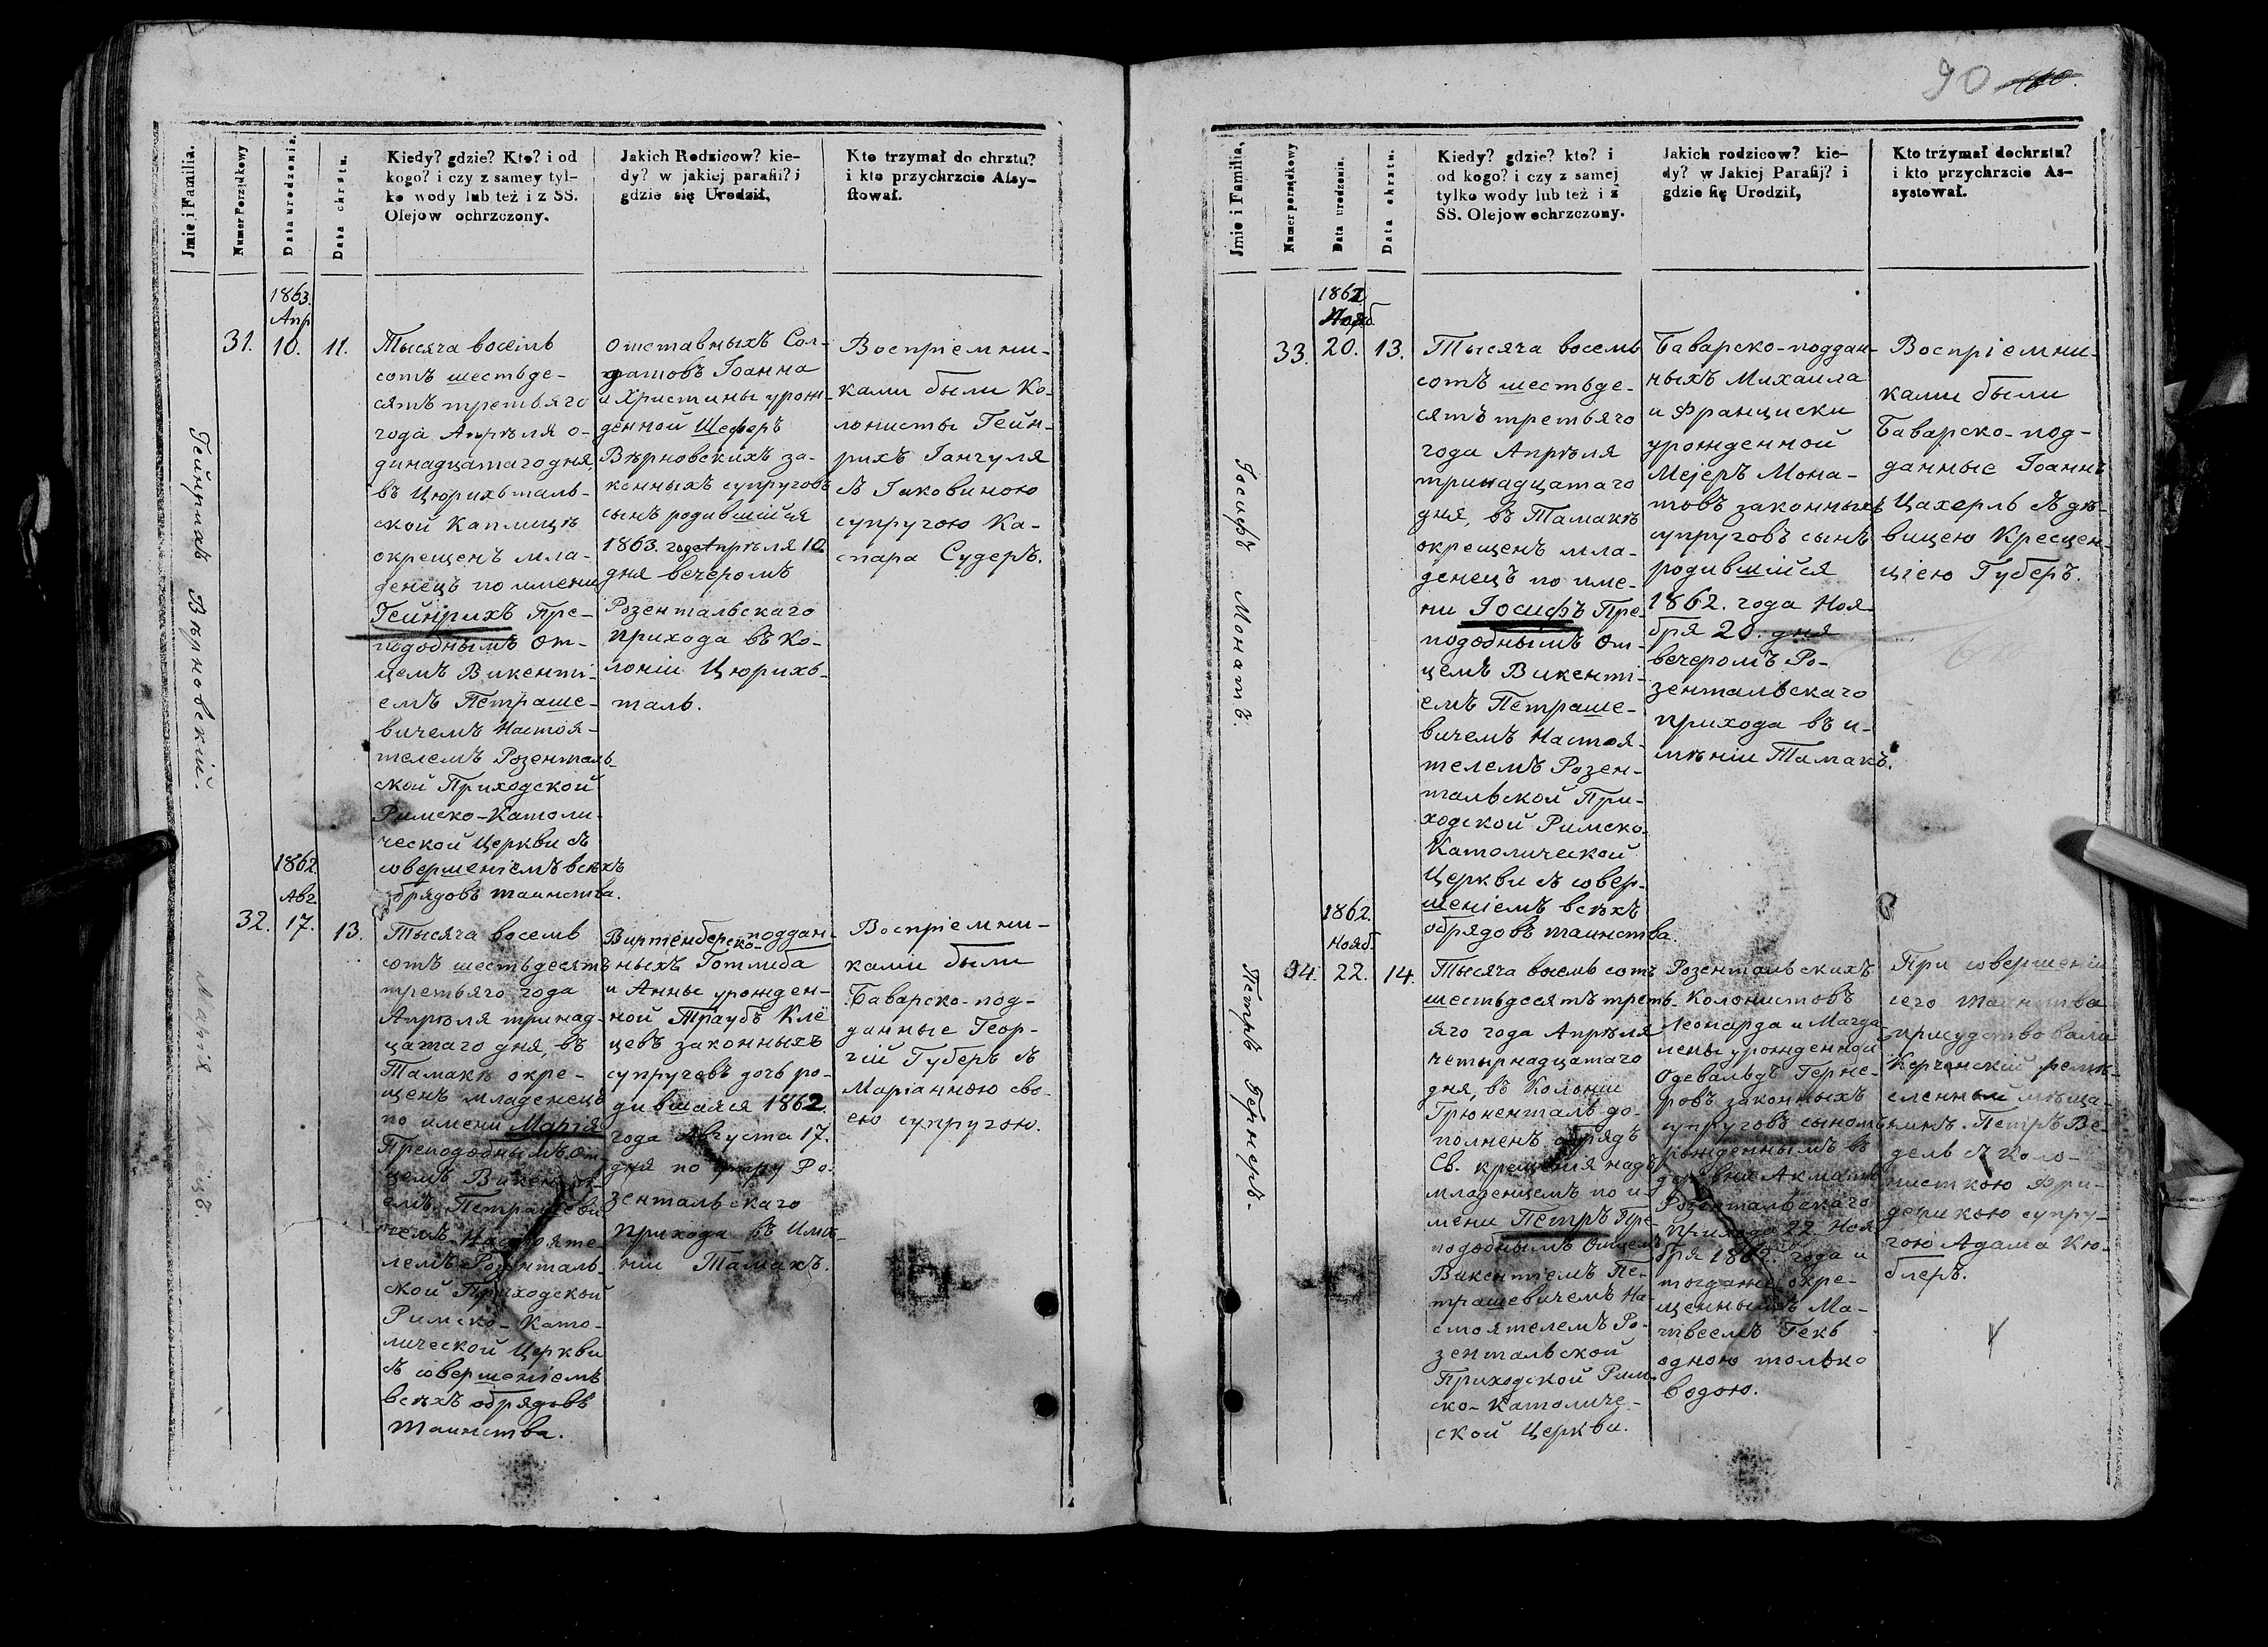 Jmie i Familia.
Numer Porządkowy
Data urodzenia.
Data chrztu.
Kiedy? gdzie? Kto? i od
kogo? i czy z samey tyl-
ko wody lub też i z SS.
Olejow ochrzczony.
Jakich Rodzicow? kie-
dy? w jakiej parafii? i
gdzie się Urodził,
Kto trzymał do chrztu?
i kto przychrzcie Assy-
stował.
Гейнрихъ Вѣрновскій.
31.
1863.
Апр
10.
11.
Тысяча восемь
сотъ шестьде-
сятъ третьяго
года Апрѣля о-
динадцатаго дня,
въ Цюрихталь-
ской Каплицѣ
окрещенъ мла-
денецъ по имени
Гейнрихъ Пре-
подобнымъ От-
цемъ Викенті-
емъ Петраше-
вичемъ Настоя-
телемъ Розенталь-
ской Приходской
Римско-Католи-
ческой Церкви съ
совершеніемъ всѣхъ
обрядовъ таинства.
отставныхъ Сол-
датовъ Іоанна
и Христины урож-
денной Шеферъ
Вѣрновскихъ за-
конныхъ супруговъ
сынъ родившійся
1863. года Апрѣля 10.
дня вечеромъ
Розентальскаго
прихода въ Ко-
лоніи Цюрих-
таль.
Воспріемни-
ками были Ко-
лонисты Гейн-
рихъ Гангуля
съ Яковиною
супругою Ка-
спара Судеръ.
Марія Клецъ.
32.
1862.
Авг
17.
13.
Тысяча восемь
сотъ шестьдесятъ
третьяго года
Апрѣля тринад-
цатаго дня, въ
Тамакѣ окре-
щенъ младенецъ
по имени Марія
Преподобнымъ От-
цемъ Викенті-
емъ Петрашеви-
чемъ Настояте-
лемъ Розенталь-
ской Приходской
Римско-Като-
лической Церкви
съ совершеніемъ
всѣхъ обрядовъ
таинства.
Виртенберско-поддан-
ныхъ Готлиба
и Анны урожден-
ной Траубъ Кле
цевъ законныхъ
супруговъ дочь ро-
дившаяся 1862.
года Августа 17.
дня по утру Ро-
зентальскаго
прихода въ Имѣ-
ніи Тамакъ.
Воспріемни-
ками были
Баварско-под-
данные Геор-
гій Губеръ съ
Маріанною сво-
ею супругою.
90
Jmie i Familia,
Numer porządkowy
Data urodzenia.
Data chrztu.
Kiedy? gdzie? kto? i
od kogo? i czy z samej
tylko wody lub też i z
SS. Olejow ochrzczony.
Jakich rodzicow? kie-
dy? w Jakiej Parafij? i
gdzie się Urodził,
Kto trzymał dochrztu?
i kto przychrzcie As-
systował.
Іосифъ Монатъ.
33.
1862
Нояб.
20.
13.
Тысяча восемь
сотъ шестьде-
сятъ третьяго
года Апрѣля
тринадцатаго
дня, въ Тамакѣ
окрещенъ мла-
денецъ по име-
ни Іосифъ Пре-
подобнымъ От-
цемъ Викенті-
емъ Петраше-
вичемъ Настоя-
телемъ Розен-
тальской При-
ходской Римско-
Католической
Церкви съ совер-
шеніемъ всѣхъ
обрядовъ таинства.
Баварско-поддан-
ныхъ Михаила
и Франциски
урожденной
Мејеръ Мона-
товъ законныхъ
супруговъ сынъ
родившійся
1862. года Ноя-
бря 20. дня
вечеромъ Ро-
зентальскаго
прихода въ и-
мѣніи Тамакъ.
Воспріемни-
ками были
Баварско-под-
данные Іоаннъ
Цахерль съ дѣ-
вицею Кресцен-
ціею Губеръ.
Петръ Гернеръ.
34.
1862.
Нояб.
22.
14.
Тысяча восемь сотъ
шестьдесятъ треть-
яго года Апрѣля
четырнадцатаго
дня, въ Колоніи
Грюненталь до-
полненъ обрядъ
Св. крещенія надъ
младенцемъ по и-
мени Петръ Пре-
подобнымъ Отцемъ
Викентіемъ Пе-
трашевичемъ На-
стоятелемъ Ро-
зентальской
Приходской Рим-
ско-Католиче-
ской Церкви.
Розентальскихъ
Колонистовъ
Леонарда и Магда-
лены урожденной
Одевальдъ Герне-
ровъ законныхъ
супруговъ сыномъ
рожденнымъ въ
деревне Акматъ
Розентальскаго
Прихода 22. Ноя-
бря 1862. года и
тогдаже окре-
щеннымъ Ма-
твеемъ Гекъ
одною только
водою.
При совершеніи
сего таинства
присудствовали
Керченскій ремѣ-
сленный мѣща-
нинъ. Петръ Ве-
дель съ Коло-
нисткою Фри-
дерикою супру-
гою Адама Кю-
блеръ.